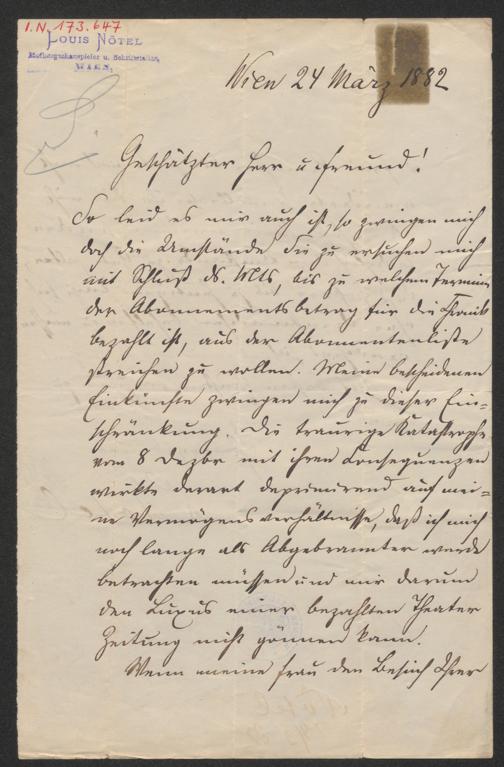 I.N. 173.647
LOUIS NÖTEL
Hofburgschauspieler u. Schriftsteller,
WIEN.
Wien 24 März 1882
Geschätzter Herr u Freund!
So leid es mir auch ist, so zwingen mich
doch die Umstände Sie zu ersuchen mich
mit Schluß ds. Mts, bis zu welchem Termin
der Abonnementsbetrag für die Chronik
bezahlt ist, aus der Abonnentenliste
streichen zu wollen. Meine bescheidenen
Einkünfte zwingen mich zu dieser Ein-
schränkung. Die traurige Katastrophe
vom 8 Dezbr mit ihren Consequenzen
wirkte derart deprimirend auf mei-
ne Vermögensverhältnisse, daß ich mich
noch lange als Abgebrannter werde
betrachten müssen und mir darum
den Luxus einer bezahlten Theater
Zeitung nicht gönnen kann.
Wenn meine Frau den Besuch Ihrer